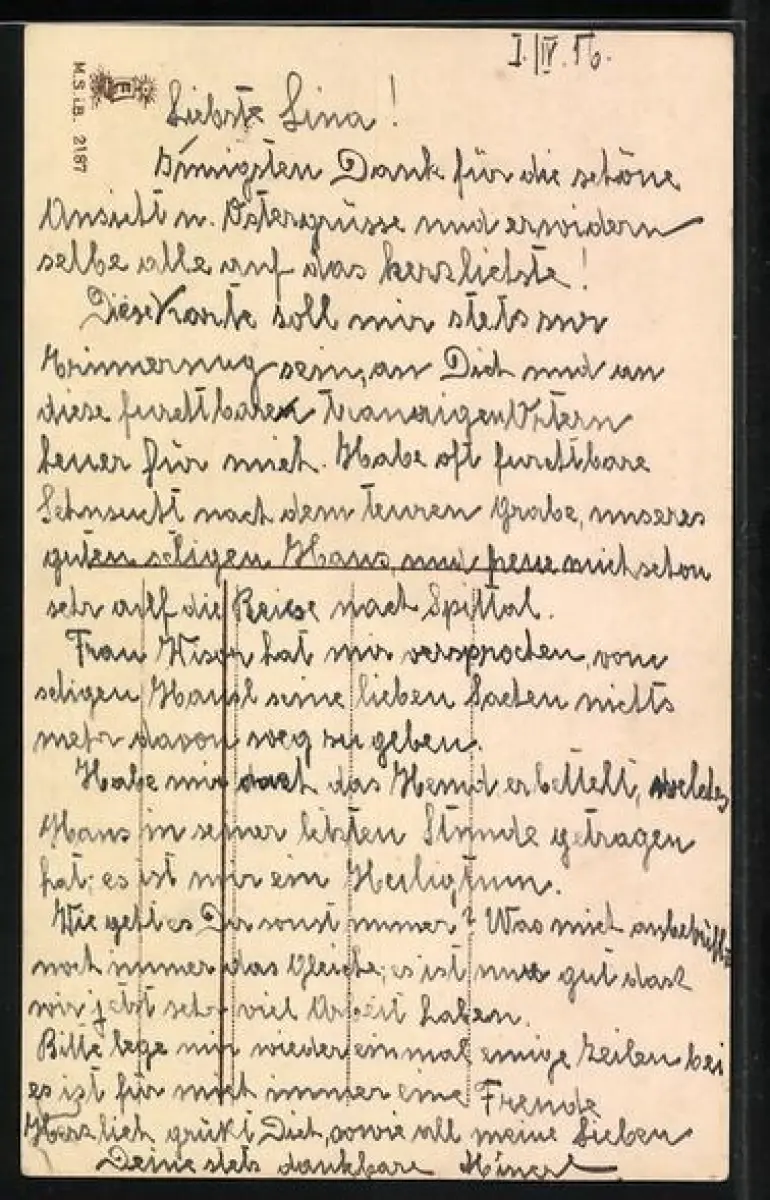 I./IV.16.
M.S.i.B. 2187
Liebste Lina!
Innigsten Dank für die schöne
Ansicht u. Ostergrüsse und erwidern
selbe alle auf das herzlichste!
Diese Karte soll mir stets zur
Erinnerung sein, an Dich und an
diese furchtbaren traurigen Ostern
heuer für mich. Habe oft furchtbare
Sehnsucht nach dem teuren Grabe, unseres
guten seligen Hans, und freue mich schon
sehr auf die Reise nach Spittal.
Frau hat mir versprochen, vom
seligen Hansl seine lieben Sachen nichts
mehr davon weg zu geben.
Habe mir das Hemd erbettelt, welches
Hans in seiner letzten Stunde getragen
hat; es ist mir ein Heiligtum.
Wie geht es Dir sonst immer? Was mich anbetrifft
noch immer das Gleiche; es ist nur gut dass
wir jetzt sehr viel Arbeit haben.
Bitte lege mir wieder einmal einige Zeilen bei
es ist für mich immer eine Freude
Herzlich grüßt Dich, sowie all meine Lieben
Deine stets dankbare